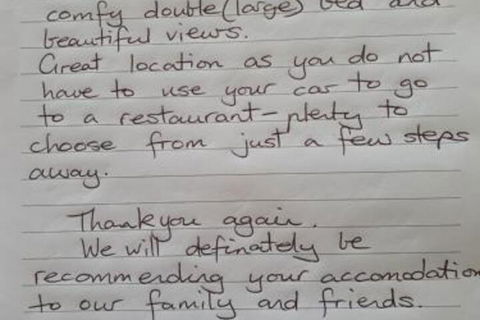 comfy double (large) bed and
beautiful views.
Great location as you do not
have to use your car to go
to a restaurant - plenty to
choose from just a few steps
away.
Thankyou again.
We will definately be
recommending your accomodation
to our family and friends.